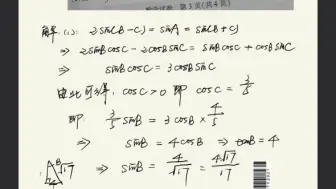 第3页(共4页)
解: (1): 2sin(B-C) = sinA = sin(B+C)
⇒ 2sinBcosC - 2cosBsinC = sinBcosC + cosBsinC
⇒ sinBcosC = 3cosBsinC
由此可得, cosC>0 即 cosC = 3/5
即 3/5 sinB = 3cosB × 4/5
⇒ sinB = 4cosB ⇒ tanB = 4
⇒ sinB = 4/√17 = 4√17/17
B √17
4